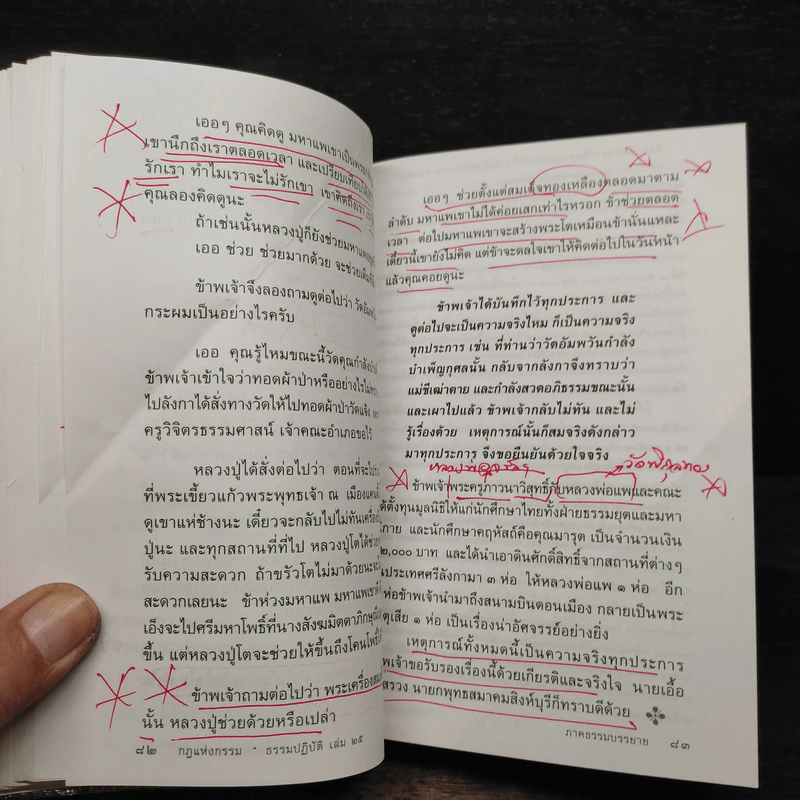 เออๆ คุณคิดดู มหาแพเขาเป็น
เขานึกถึงเราตลอดเวลา และเปรียบเทียบ
รักเรา ทำไมเราจะไม่รักเขา เขาคิดถึงเรา
คุณลองคิดดูนะ
ถ้าเช่นนั้นหลวงปู่ก็ยังช่วยมหาแพ
เออ ช่วย ช่วยมากด้วย จะช่วย
ข้าพเจ้าจึงลองถามดูต่อไปว่า วัดอัมพ
กระผมเป็นอย่างไรครับ
เออ คุณรู้ไหมขณะนี้วัดคุณกำลัง
ข้าพเจ้าเข้าใจว่าทอดผ้าป่าหรืออย่างไรไม่
ไปลังกาได้สั่งทางวัดให้ไปทอดผ้าป่าวัดแจ้ง
ครูวิจิตรธรรมศาสน์ เจ้าคณะอำเภอขอไว้
หลวงปู่ได้สั่งต่อไปว่า ตอนที่จะไป
ที่พระเขี้ยวแก้วพระพุทธเจ้า ณ เมือง
ดูเขาแห่ช้างนะ เดี๋ยวจะกลับไปไม่ทันเครื่อง
ปู่นะ และทุกสถานที่ที่ไป หลวงปู่โตได้ช่วย
รับความสะดวก ถ้าขรัวโตไม่มาด้วยนะ
สะดวกเลยนะ ข้าห่วงมหาแพ มหาแพเขา
เอ็งจะไปศรีมหาโพธิ์ที่นางสังฆมิตตาภิกษุณี
ขึ้น แต่หลวงปู่โตจะช่วยให้ขึ้นถึงโคนโพธิ์
ข้าพเจ้าถามต่อไปว่า พระเครื่อง
นั้น หลวงปู่ช่วยด้วยหรือเปล่า
๘๒ กฎแห่งกรรม - ธรรมปฏิบัติ เล่ม ๒๕
เออๆ ช่วยตั้งแต่สมเด็จทองเหลืองตลอดมาตาม
ลำดับ มหาแพเขาไม่ได้ค่อยเสกเท่าไรหรอก ข้าช่วยตลอด
เวลา ต่อไปมหาแพเขาจะสร้างพระโตเหมือนข้านั่นแหละ
เดี๋ยวนี้เขายังไม่คิด แต่ข้าจะดลใจเขาให้คิดต่อไปในวันหน้า
แล้วคุณคอยดูนะ
ข้าพเจ้าได้บันทึกไว้ทุกประการ และ
ดูต่อไปจะเป็นความจริงไหม ก็เป็นความจริง
ทุกประการ เช่น ที่ท่านว่าวัดอัมพวันกำลัง
บำเพ็ญกุศลนั้น กลับจากลังกาจึงทราบว่า
แม่ชีเฒ่าตาย และกำลังสวดอภิธรรมขณะนั้น
และเผาไปแล้ว ข้าพเจ้ากลับไม่ทัน และไม่
รู้เรื่องด้วย เหตุการณ์นั้นก็สมจริงดังกล่าว
มาทุกประการ จึงขอยืนยันด้วยใจจริง
หลวงพ่อจรัญ วัดพิกุลทอง
ข้าพเจ้าพระครูภาวนาวิสุทธิ์กับหลวงพ่อแพและคณะ
ได้ตั้งทุนมูลนิธิให้แก่นักศึกษาไทยทั้งฝ่ายธรรมยุตและมหา
นิกาย และนักศึกษาคฤหัสถ์คือคุณมารุต เป็นจำนวนเงิน
๒,๐๐๐ บาท และได้นำเอาดินศักดิ์สิทธิ์จากสถานที่ต่างๆ
ประเทศศรีลังกามา ๓ ห่อ ให้หลวงพ่อแพ ๑ ห่อ อีก
ห่อข้าพเจ้านำมาถึงสนามบินดอนเมือง กลายเป็นพระ
ตุเสีย ๑ ห่อ เป็นเรื่องน่าอัศจรรย์อย่างยิ่ง
เหตุการณ์ทั้งหมดนี้เป็นความจริงทุกประการ
พเจ้าขอรับรองเรื่องนี้ด้วยเกียรติและจริงใจ นายเอื้อ
สรวง นายกพุทธสมาคมสิงห์บุรีก็ทราบดีด้วย
ภาคธรรมบรรยาย ๘๓